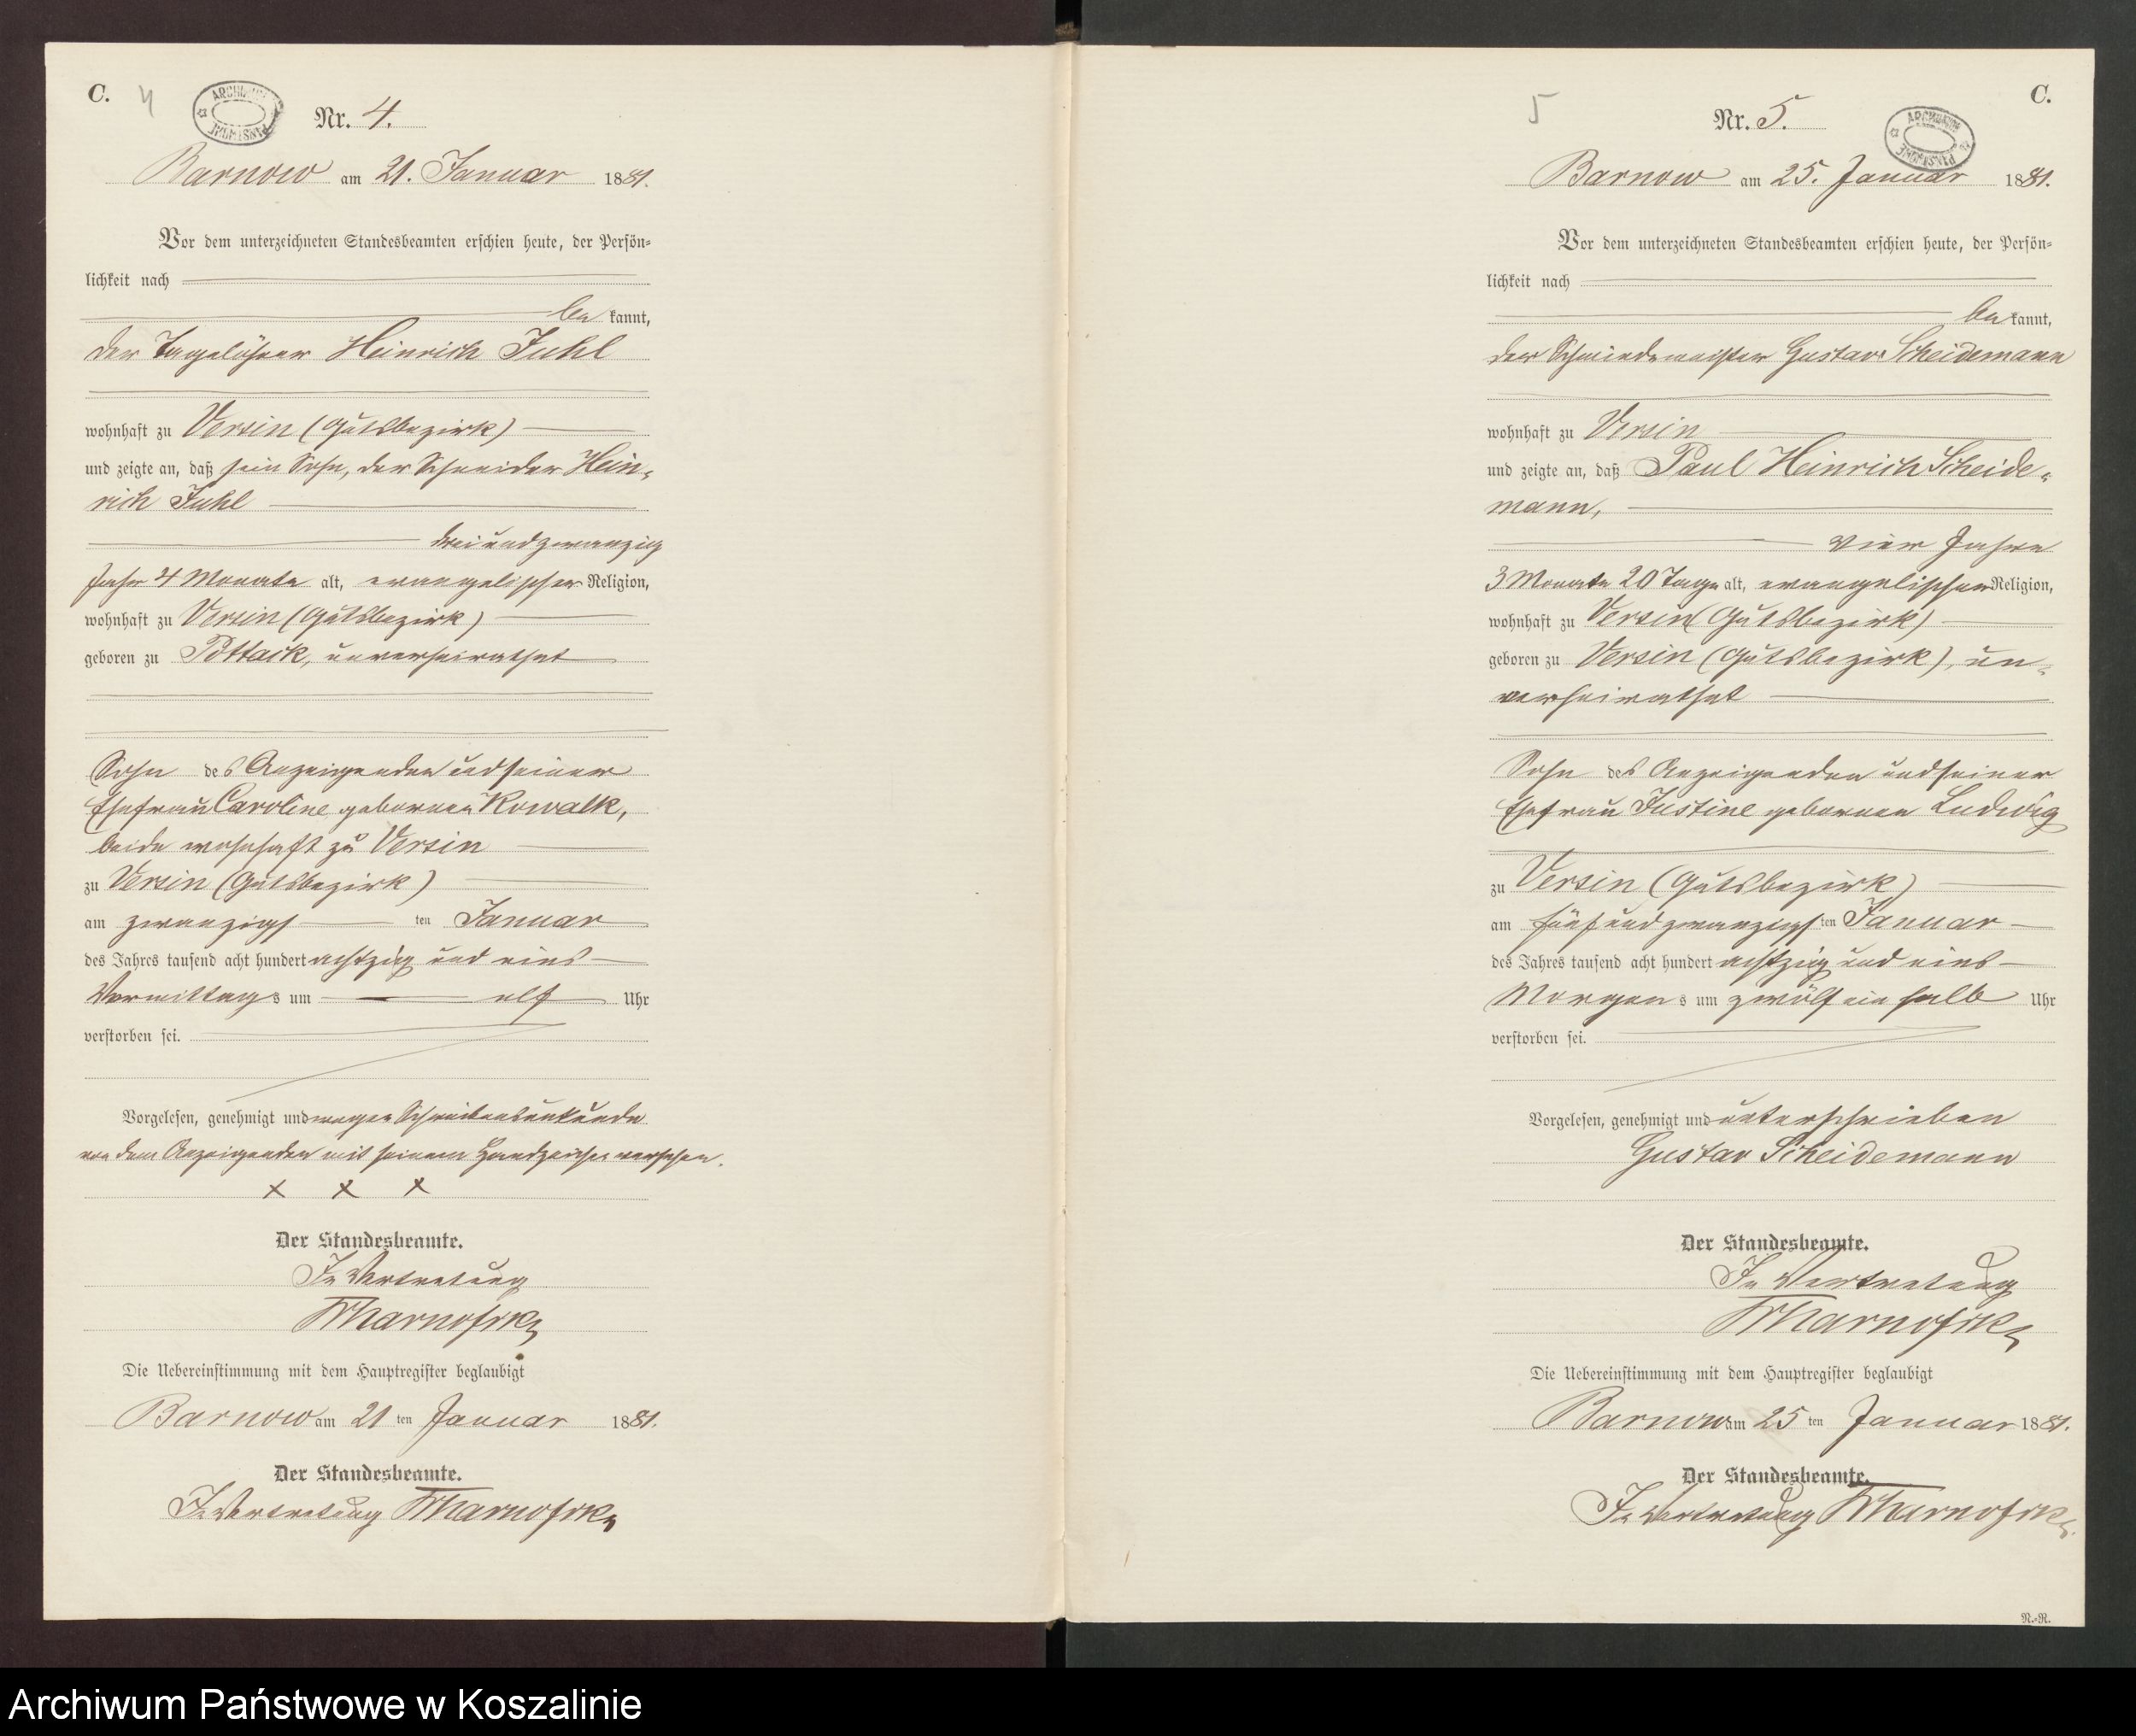 C.
4
ARCHIWUM PAŃSTWOWE
Nr. 4.
Barnow am 21. Januar 1881.
Vor dem unterzeichneten Standesbeamten erschien heute, der Persön-
lichkeit nach
be kannt,
der Tagelöhner Heinrich Juhl
wohnhaft zu Versin (Gutsbezirk)
und zeigte an, daß sein Sohn, der Schneider Hein-
rich Juhl
drei und zwanzig
Jahr 4 Monate alt, evangelischer Religion,
wohnhaft zu Versin (Gutsbezirk)
geboren zu Pottack, unverheirathet
Sohn des Anzeigenden und seiner
Ehefrau Caroline geborenen Kowalk,
beide wohnhaft zu Versin
zu Versin (Gutsbezirk)
am zwanzigs ten Januar
des Jahres tausend acht hundert achtzig und eins
Vormittags um elf Uhr
verstorben sei.
Vorgelesen, genehmigt und wegen Schreibensunkunde
von dem Anzeigenden mit seinem Handzeichen versehen.
x x x
Der Standesbeamte.
In Vertretung
Die Uebereinstimmung mit dem Hauptregister beglaubigt
Barnow am 21 ten Januar 1881.
Der Standesbeamte.
In Vertretung
C.
5
Nr. 5.
ARCHIWUM PAŃSTWOWE
Barnow am 25. Januar 1881.
Vor dem unterzeichneten Standesbeamten erschien heute, der Persön-
lichkeit nach
be kannt,
der Schmiedemeister Gustav Scheidemann
wohnhaft zu Versin
und zeigte an, daß Paul Heinrich Scheide-
mann,
vier Jahre
3 Monate 20 Tage alt, evangelischer Religion,
wohnhaft zu Versin (Gutsbezirk)
geboren zu Versin (Gutsbezirk), un-
verheirathet
Sohn des Anzeigenden und seiner
Ehefrau Justine geborenen Ludwig
zu Versin (Gutsbezirk)
am fünf und zwanzigs ten Januar
des Jahres tausend acht hundert achtzig und eins
Morgens um zwölf ein halb Uhr
verstorben sei.
Vorgelesen, genehmigt und unterschrieben
Gustav Scheidemann
Der Standesbeamte.
In Vertretung
Die Uebereinstimmung mit dem Hauptregister beglaubigt
Barnow am 25 ten Januar 1881.
Der Standesbeamte.
In Vertretung
N.-R.
Archiwum Państwowe w Koszalinie